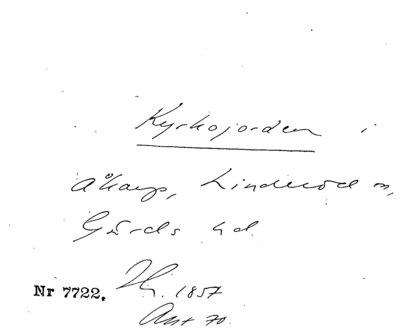 Kyrkojorden i
Åkarp, Linderöd sn,
Gärds hd.
Nr 7722.
1857
Ant 70